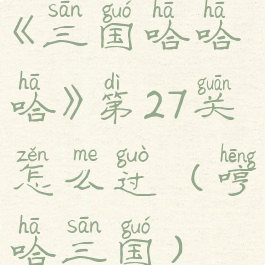 sān guó hā hā
《三国哈哈
hā dì guān
哈》第27关
zěn me guò hēng
怎么过（哼
hā sān guó
哈三国）